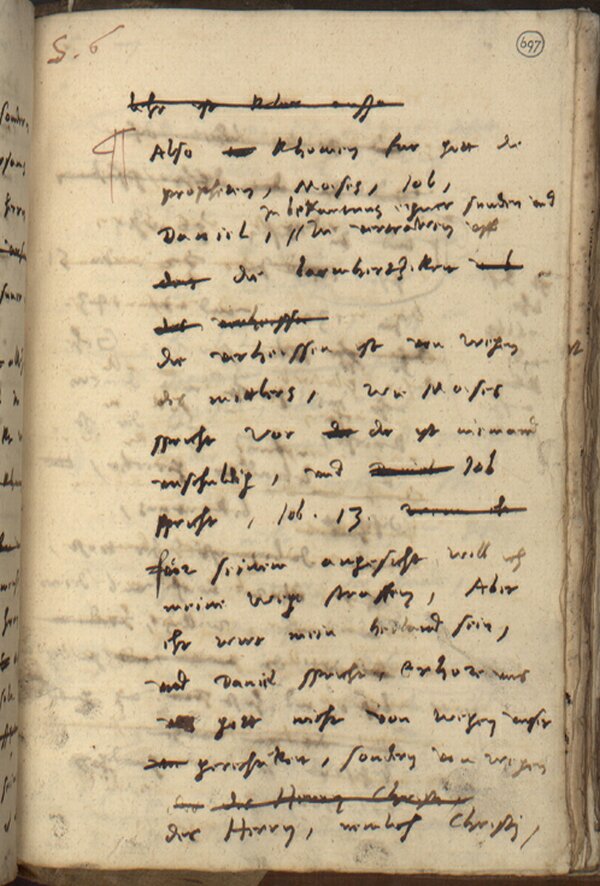 S. 6
697
Also khomen fur gott die
propheten, Moises, Iob,
in bekantnus eigner sunden und
Daniel, vertrawen uff
die barmhertzikeit
die verheissen ist von wegen
des mitlers, wie Moises
spricht vor dir ist niemand
unschuldig, und Iob
spricht, Iob. 13.
für seinem angesicht will ich
meine wege straffen, Aber
ehr wirt mein heiland sein,
und Daniel spricht, Erhore uns
gott nicht von wegen unser
gerechtikeit, sondern von wegen
des Herrn Christi,
des Herrn, nemlich Christi,